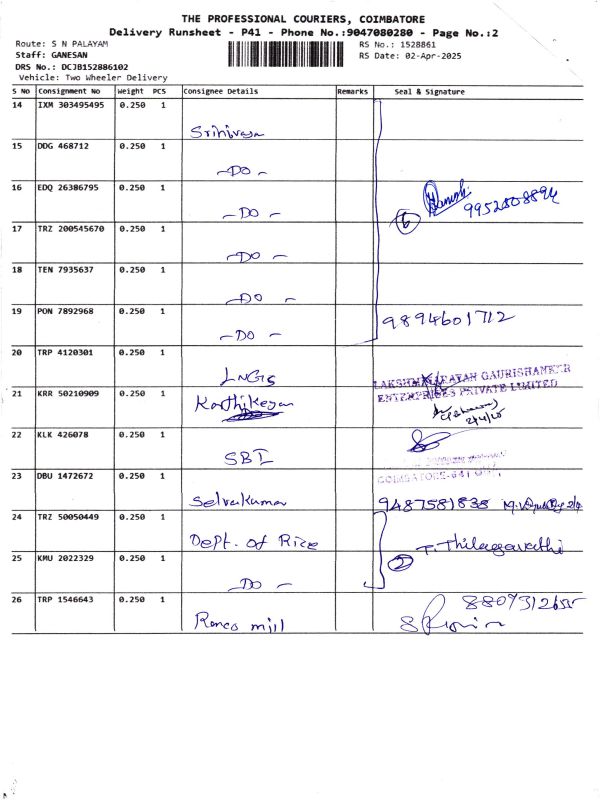 THE PROFESSIONAL COURIERS, COIMBATORE
Delivery Runsheet - P41 - Phone No.:9047080280 - Page No.:2
Route: S N PALAYAM
RS No.: 1528861
Staff: GANESAN
RS Date: 02-Apr-2025
DRS No.: DCJB152886102
Vehicle: Two Wheeler Delivery
S No Consignment No Weight PCS Consignee Details Remarks Seal & Signature
14 IXM 303495495 0.250 1
Srinivasa
15 DDG 468712 0.250 1
-DO-
16 EDQ 26386795 0.250 1
-DO- 6
17 TRZ 200545670 0.250 1
-DO-
18 TEN 7935637 0.250 1
-DO-
19 PON 7892968 0.250 1
-DO- 9894601712
20 TRP 4120301 0.250 1
LNGS LAKSHMINARAYAN GAURISHANKER
ENTERPRISES PRIVATE LIMITED
21 KRR 50210909 0.250 1
Karthikeyan
2/4/25
22 KLK 426078 0.250 1
SBI
COIMBATORE-641
23 DBU 1472672 0.250 1
Selvakumar 9487581838
24 TRZ 50050449 0.250 1
Dept. of Rice T. Thilagavathi
25 KMU 2022329 0.250 1
-DO- 2
26 TRP 1546643 0.250 1
Ranco mill